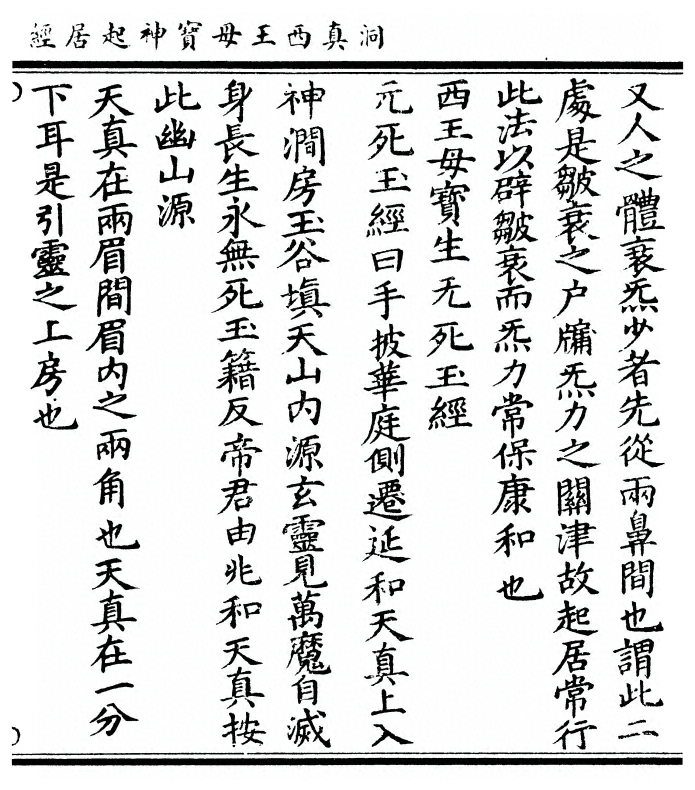 洞真西王母寶神起居經
又人之體衰炁少者先從兩鼻間也謂此二
處是皺衰之户牖炁力之關津故起居常行
此法以辟皺衰而炁力常保康和也
西王母寶生无死玉經
元死玉經曰手披華庭側遷延和天真上入
神澗房玉谷填天山内源玄靈見萬魔自滅
身長生永無死玉籍反帝君由兆和天真按
此幽山源
天真在兩眉間眉内之兩角也天真在一分
下耳是引靈之上房也